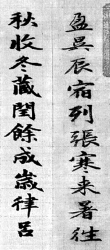 盈昃辰宿列張寒来暑往
秋收冬藏閏餘成歲律呂